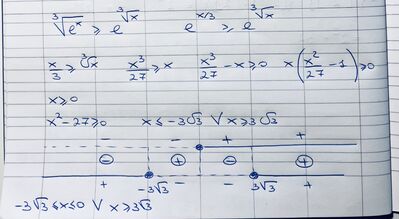 ∛eˣ ≥ e^∛x    e^(x/3) ≥ e^∛x
x/3 ≥ ∛x    x³/27 ≥ x    x³/27 - x ≥ 0    x(x²/27 - 1) ≥ 0
x ≥ 0
x² - 27 ≥ 0    x ≤ -3√3 ∨ x ≥ 3√3
- - + +
⊖ ⊕ ⊖ ⊕
+ -3√3 - - 3√3 +
-3√3 ≤ x ≤ 0 ∨ x ≥ 3√3